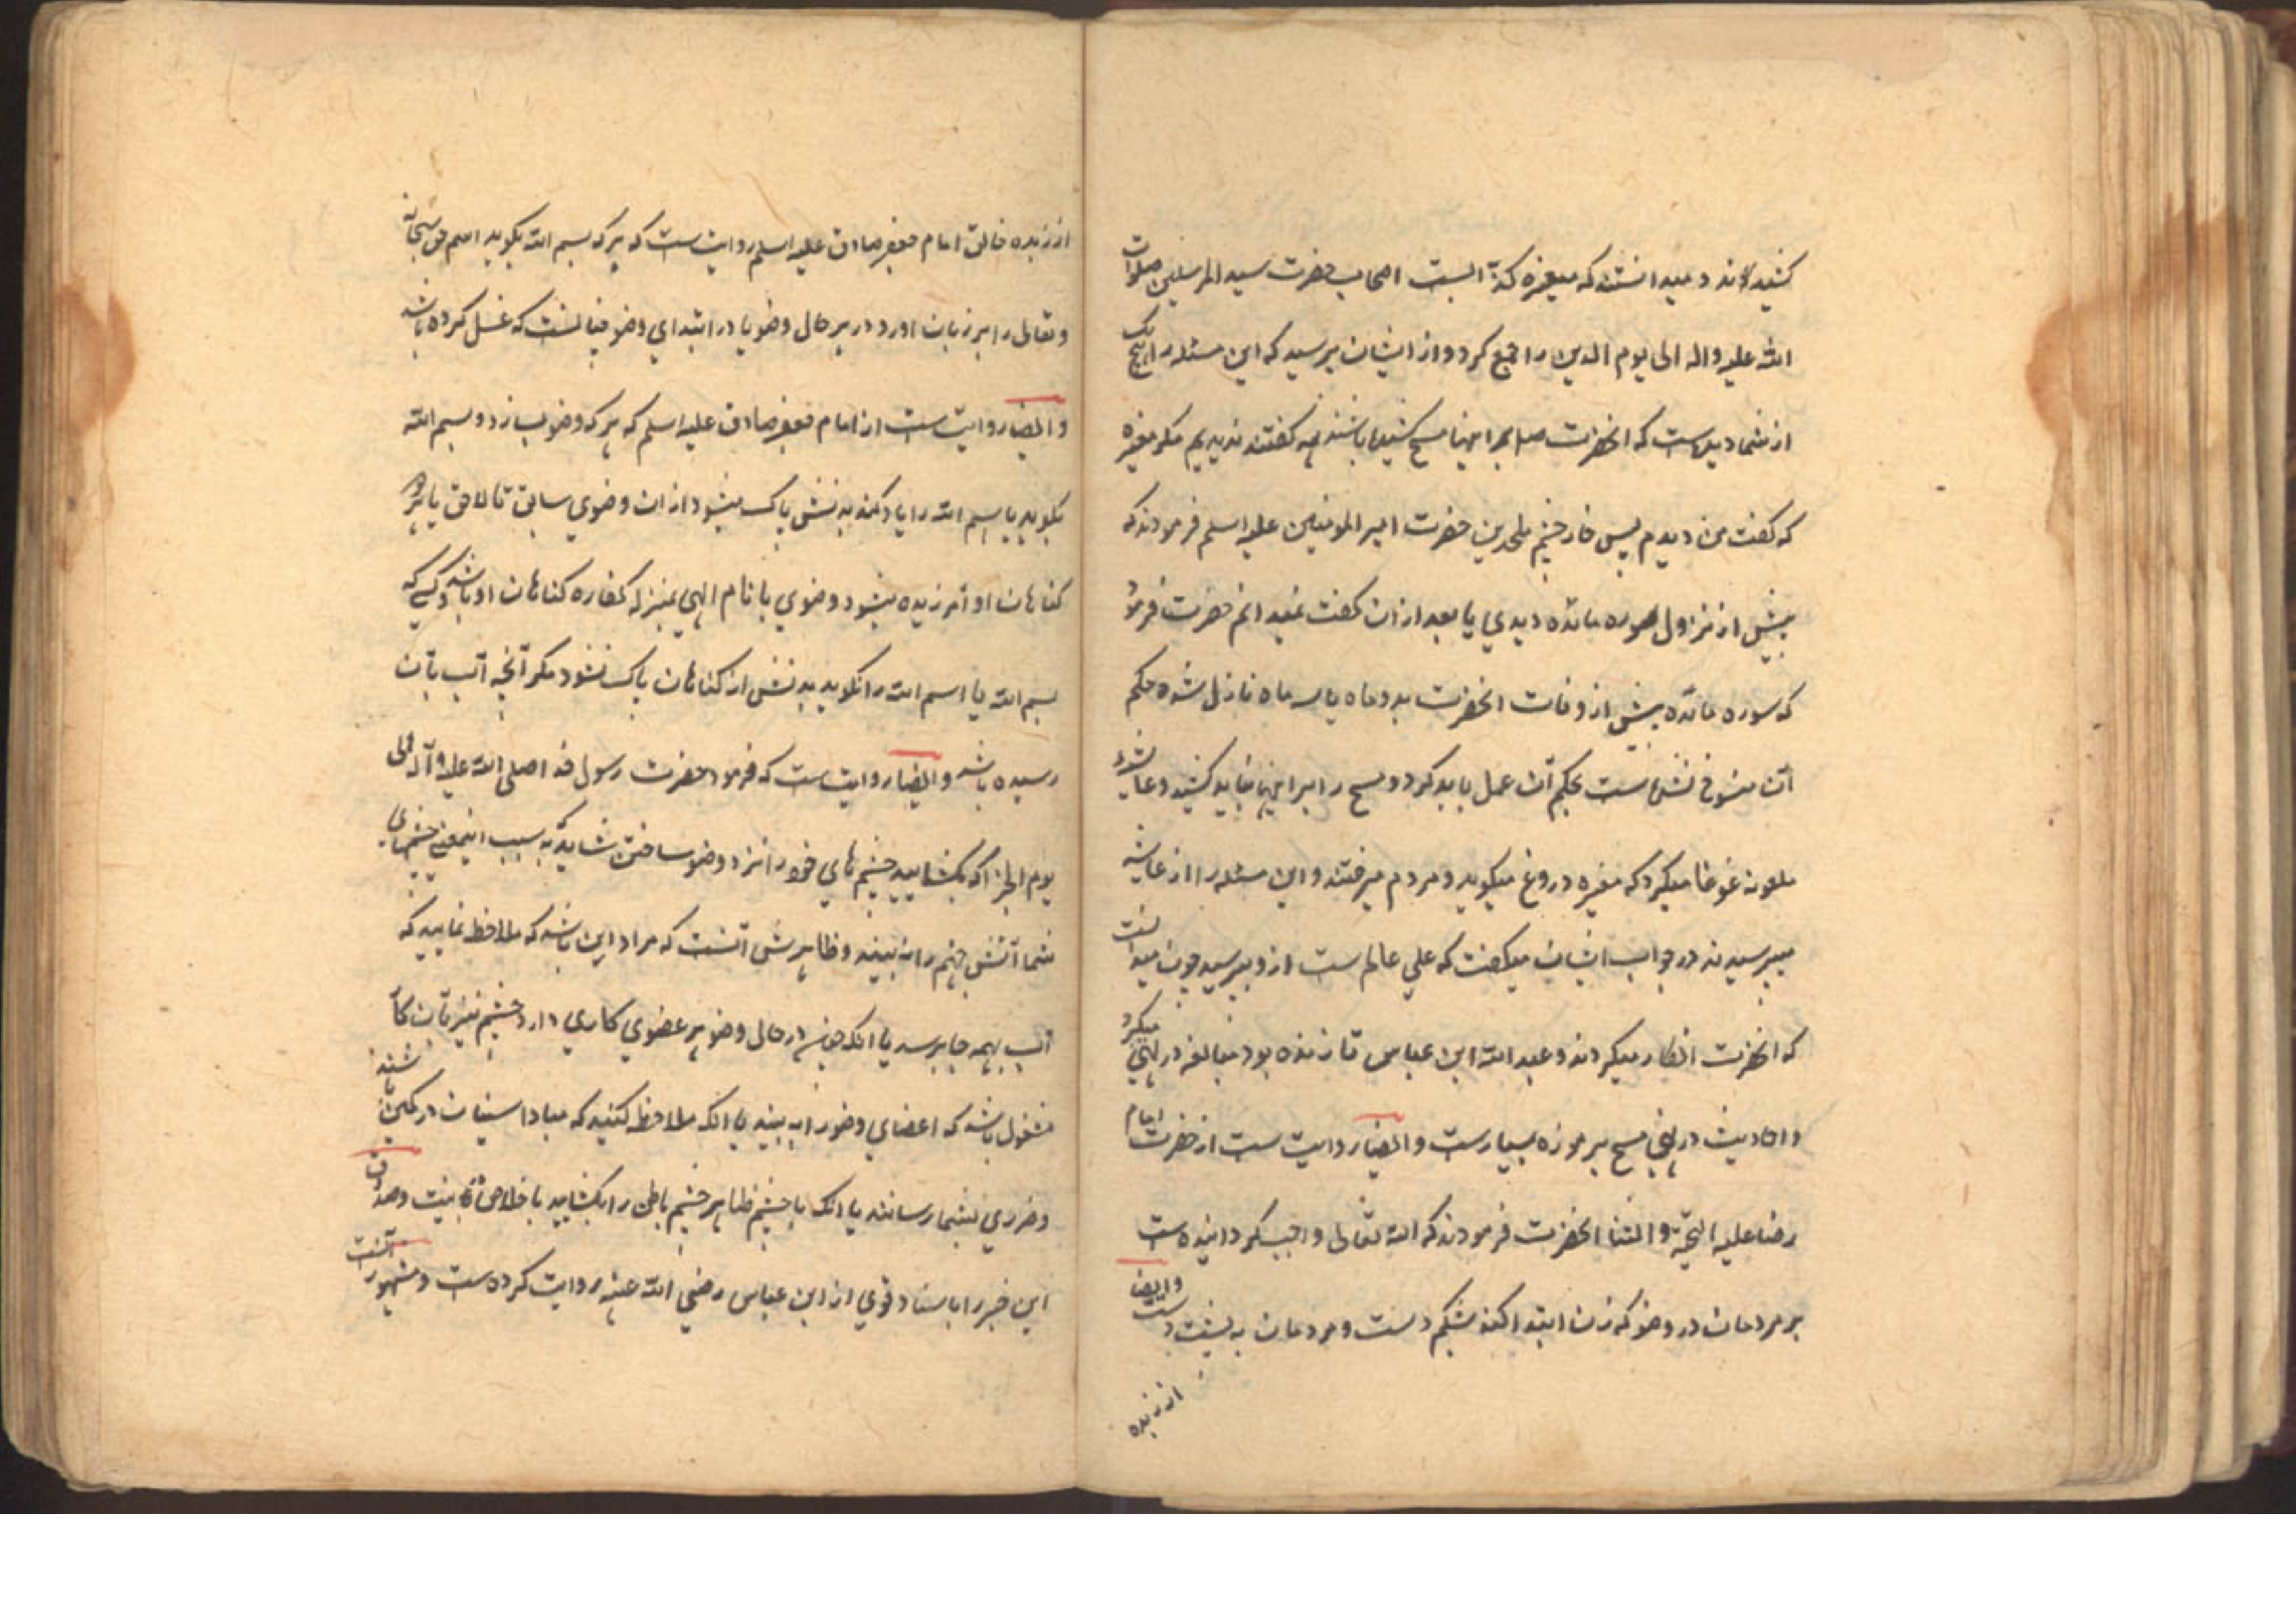 کشیده‌اند و میدانستند که مغیره کذّابست اصحاب حضرت سید المرسلین صلوات
الله علیه واله الی یوم الدین را جمع کرد و از ایشان پرسید که این مسئله را هیچ یک
از شما دیده‌است که انحضرت صلع بر اینها مسح کشیده باشند همه کفتند ندیدیم مکر مغیره
که کفت من دیدم پس خار چشم ملحدین حضرت امیر المومنین علیه اسلم فرمودند که
پیش از نزول سوره مائده دیدی یا بعد از ان کفت نمیدانم حضرت فرمود
که سوره مائده پیش از وفات انحضرت بدو ماه یا سه ماه نازل شده حکم
آن منسوخ نشده‌است بحکم آن عمل باید کرد و مسح را بر اینها نباید کشید و عایشه
ملعونه غوغا میکرد که مغیره دروغ میکوید و مردم میرفتند و این مسئله را از عایشه
میپرسیدند در جواب ایشان میکفت که علی عالم ست از و بپرسید چون میدانست
که انحضرت انکار میکردند و عبد الله ابن عباس تا زنده بود مبالغه در نهی میکرد
و احادیث در نهی مسح بر موزه بسیارست وایضا روایت ست از حضرت امام
رضا علیه التحیّة و الثنا انحضرت فرمودند که الله تعالی واجب کردانیده‌ست
بر مردمان در وضو که زنان ابتدا کنند بشکم دست و مردمان به پشت دست وایضا
از زبده
از زبده خالق امام جعفر صادق علیه اسلم روایت ست که هر که بسم الله بکوید اسم حق سبحانه
و تعالی را بر زبان اورد در هر حال وضو یا در ابتدای وضو چنانست که غسل کرده باشد
وایضا روایت ست از امام جعفر صادق علیه اسلم که هر که وضو بسازد و بسم الله
بکوید یا اسم الله را یاد کند بدنش پاک میشود از ان وضوی سابق تا لاحق یا هر
کناهان او آمرزیده میشود وضوی با نام الهی بمنزله کفاره کناهان او باشد و کسی که
بسم الله یا اسم الله را نکوید بدنش از کناهان پاک نشود مکر آنچه آب بآن
رسیده باشد وایضا روایت ست که فرمود حضرت رسول خدا صلی الله علیه وآله الی
یوم الجزا که بکشایید چشم های خود را نزد وضو ساختن شاید که به سبب اینمعنی چشمهای
شما آتش جهنم را نه بیند و ظاهرش آنست که مراد این باشد که ملاحظه نمایید که
آب بهمه جا برسد یا انکه چون در حال وضو هر عضوی کاری دارد چشم نیز بآن کار
مشغول باشد که اعضای وضو را به بیند یا انکه ملاحظه کنید که مبادا در کمین باشند
و ضرری بشما رسانند یا انکه با چشم ظاهر چشم باطن را بکشایید با خلاص نیت و صدوق
این خبر را باسناد قوی از ابن عباس رضی الله عنه روایت کرده‌ست و مشهور آنست